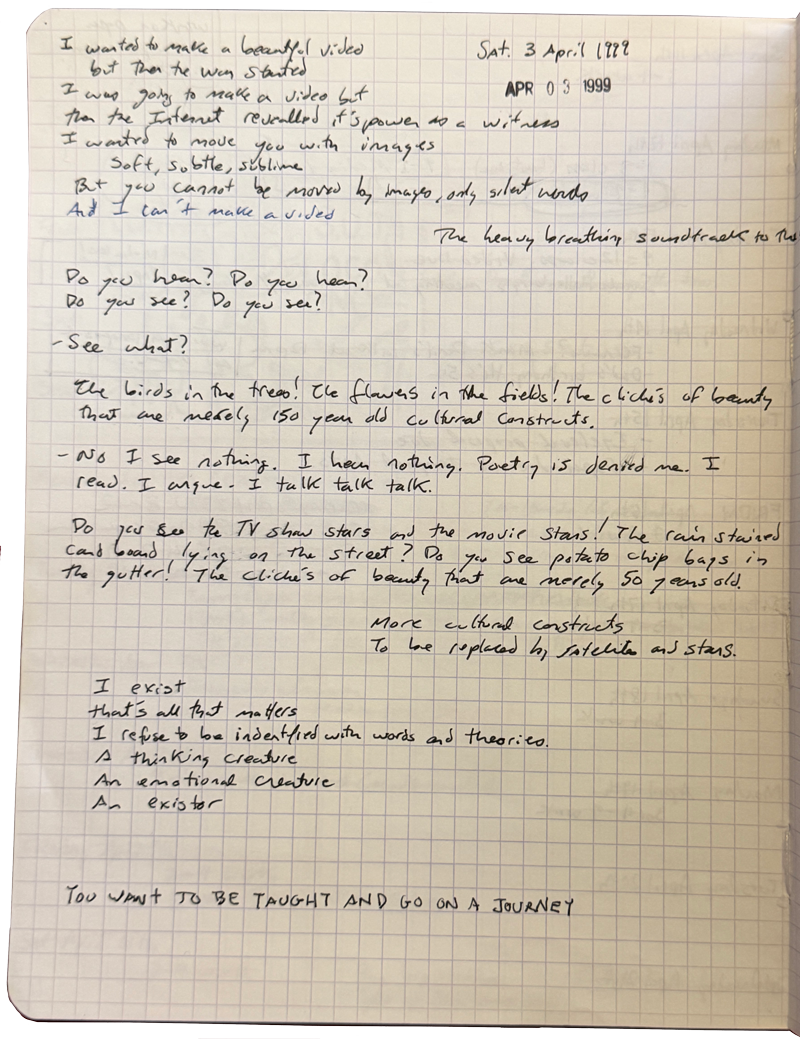 Sat. 3 April 1999
APR 03 1999
I wanted to make a beautiful video
but then the war started
I was going to make a video but
then the Internet revealled it's power as a witness
I wanted to move you with images
Soft, subtle, sublime
But you cannot be moved by images, only silent words
And I can't make a video
The heavy breathing soundtrack to
Do you hear? Do you hear?
Do you see? Do you see?
- See what?
The birds in the trees! The flowers in the fields! The cliché's of beauty
that are merely 150 year old cultural constructs.
- No I see nothing. I hear nothing. Poetry is denied me. I
read. I argue. I talk talk talk.
Do you see the TV show stars and the movie stars! The rain stained
cardboard lying on the street? Do you see potato chip bags in
the gutter! The cliché's of beauty that are merely 50 years old.
More cultural constructs
To be replaced by satelites and stars.
I exist
that's all that matters
I refuse to be indentified with words and theories.
A thinking creature
An emotional creature
An existor
YOU WANT TO BE TAUGHT AND GO ON A JOURNEY